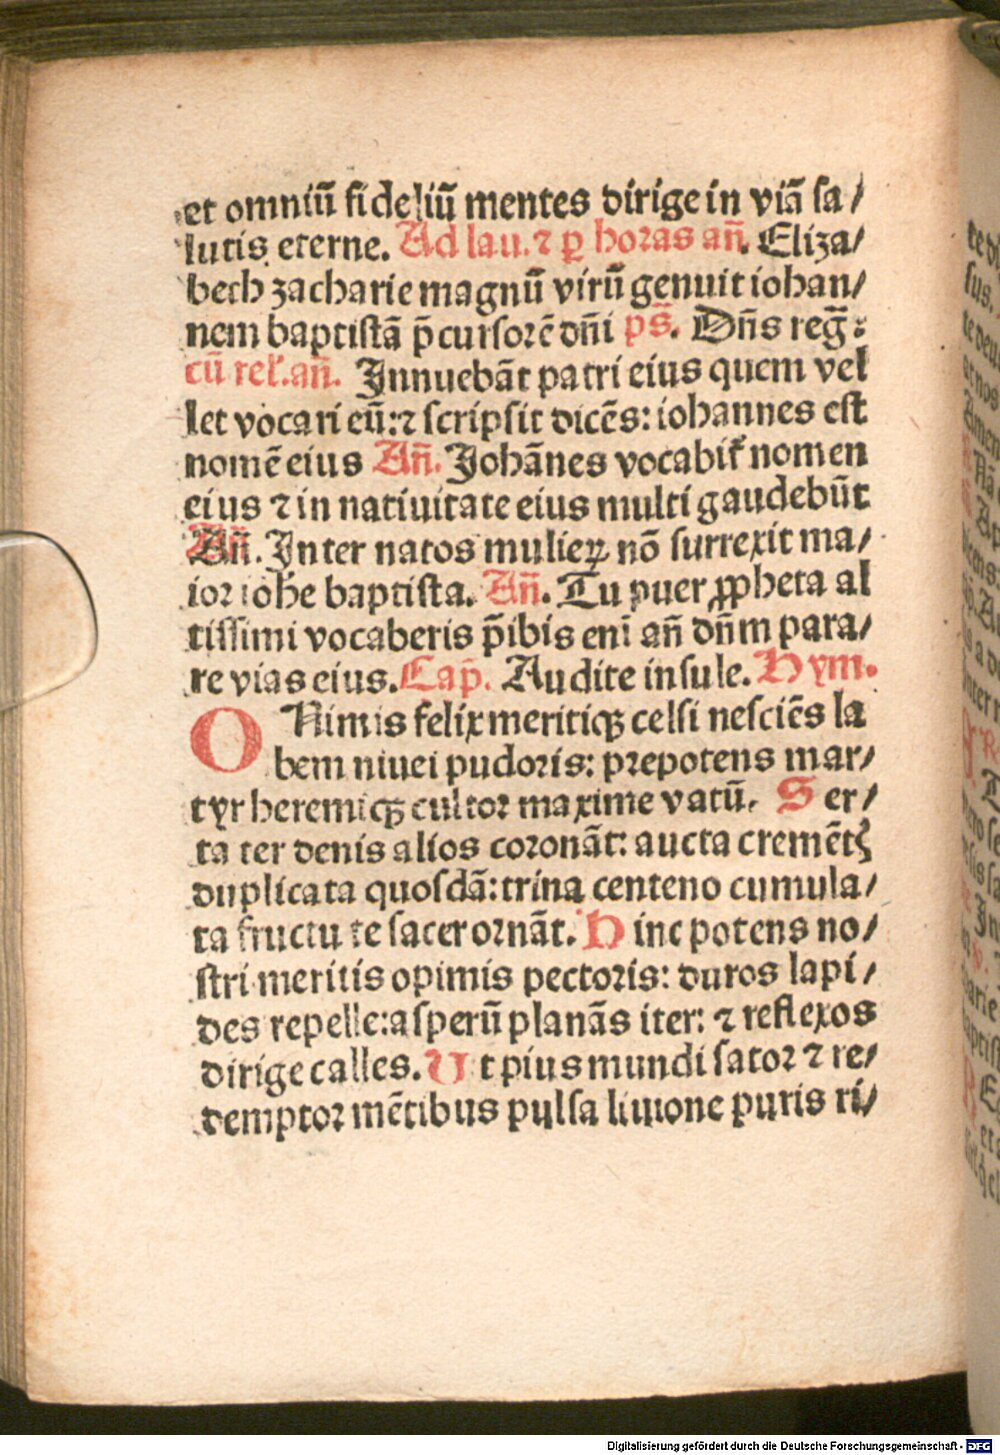 et omniū fideliū mentes dirige in viā sa/
lutis eterne. Ad lau. ⁊ ꝑ horas an̄. Eliza/
beth zacharie magnū virū genuit iohan/
nem baptistā p̄cursorē dn̄i ps̄. Dn̄s reḡ:
cū rel'. an̄. Innuebāt patri eius quem vel
let vocari eū: ⁊ scripsit dicēs: iohannes est
nomē eius An̄. Johānes vocabit' nomen
eius ⁊ in natiuitate eius multi gaudebūt
An̄. Inter natos mulieꝝ nō surrexit ma/
ior iohe baptista. An̄. Tu puer ꝓpheta al
tissimi vocaberis p̄ibis eni an̄ dn̄m para/
re vias eius. Cap̄. Audite insule. Hym.
O Nimis felix meritiqꝫ celsi nesciēs la
bem niuei pudoris: prepotens mar/
tyr heremiqꝫ cultor maxime vatū. Ser/
ta ter denis alios coronāt: aucta cremētꝭ
duplicata quosdā: trina centeno cumula/
ta fructu te sacer ornāt. Hinc potens no/
stri meritis opimis pectoris: duros lapi/
des repelle: asperū planās iter: ⁊ reflexos
dirige calles. Ut pius mundi sator ⁊ re/
demptor mētibus pulsa liuione puris ri/
Digitalisierung gefördert durch die Deutsche Forschungsgemeinschaft - DFG